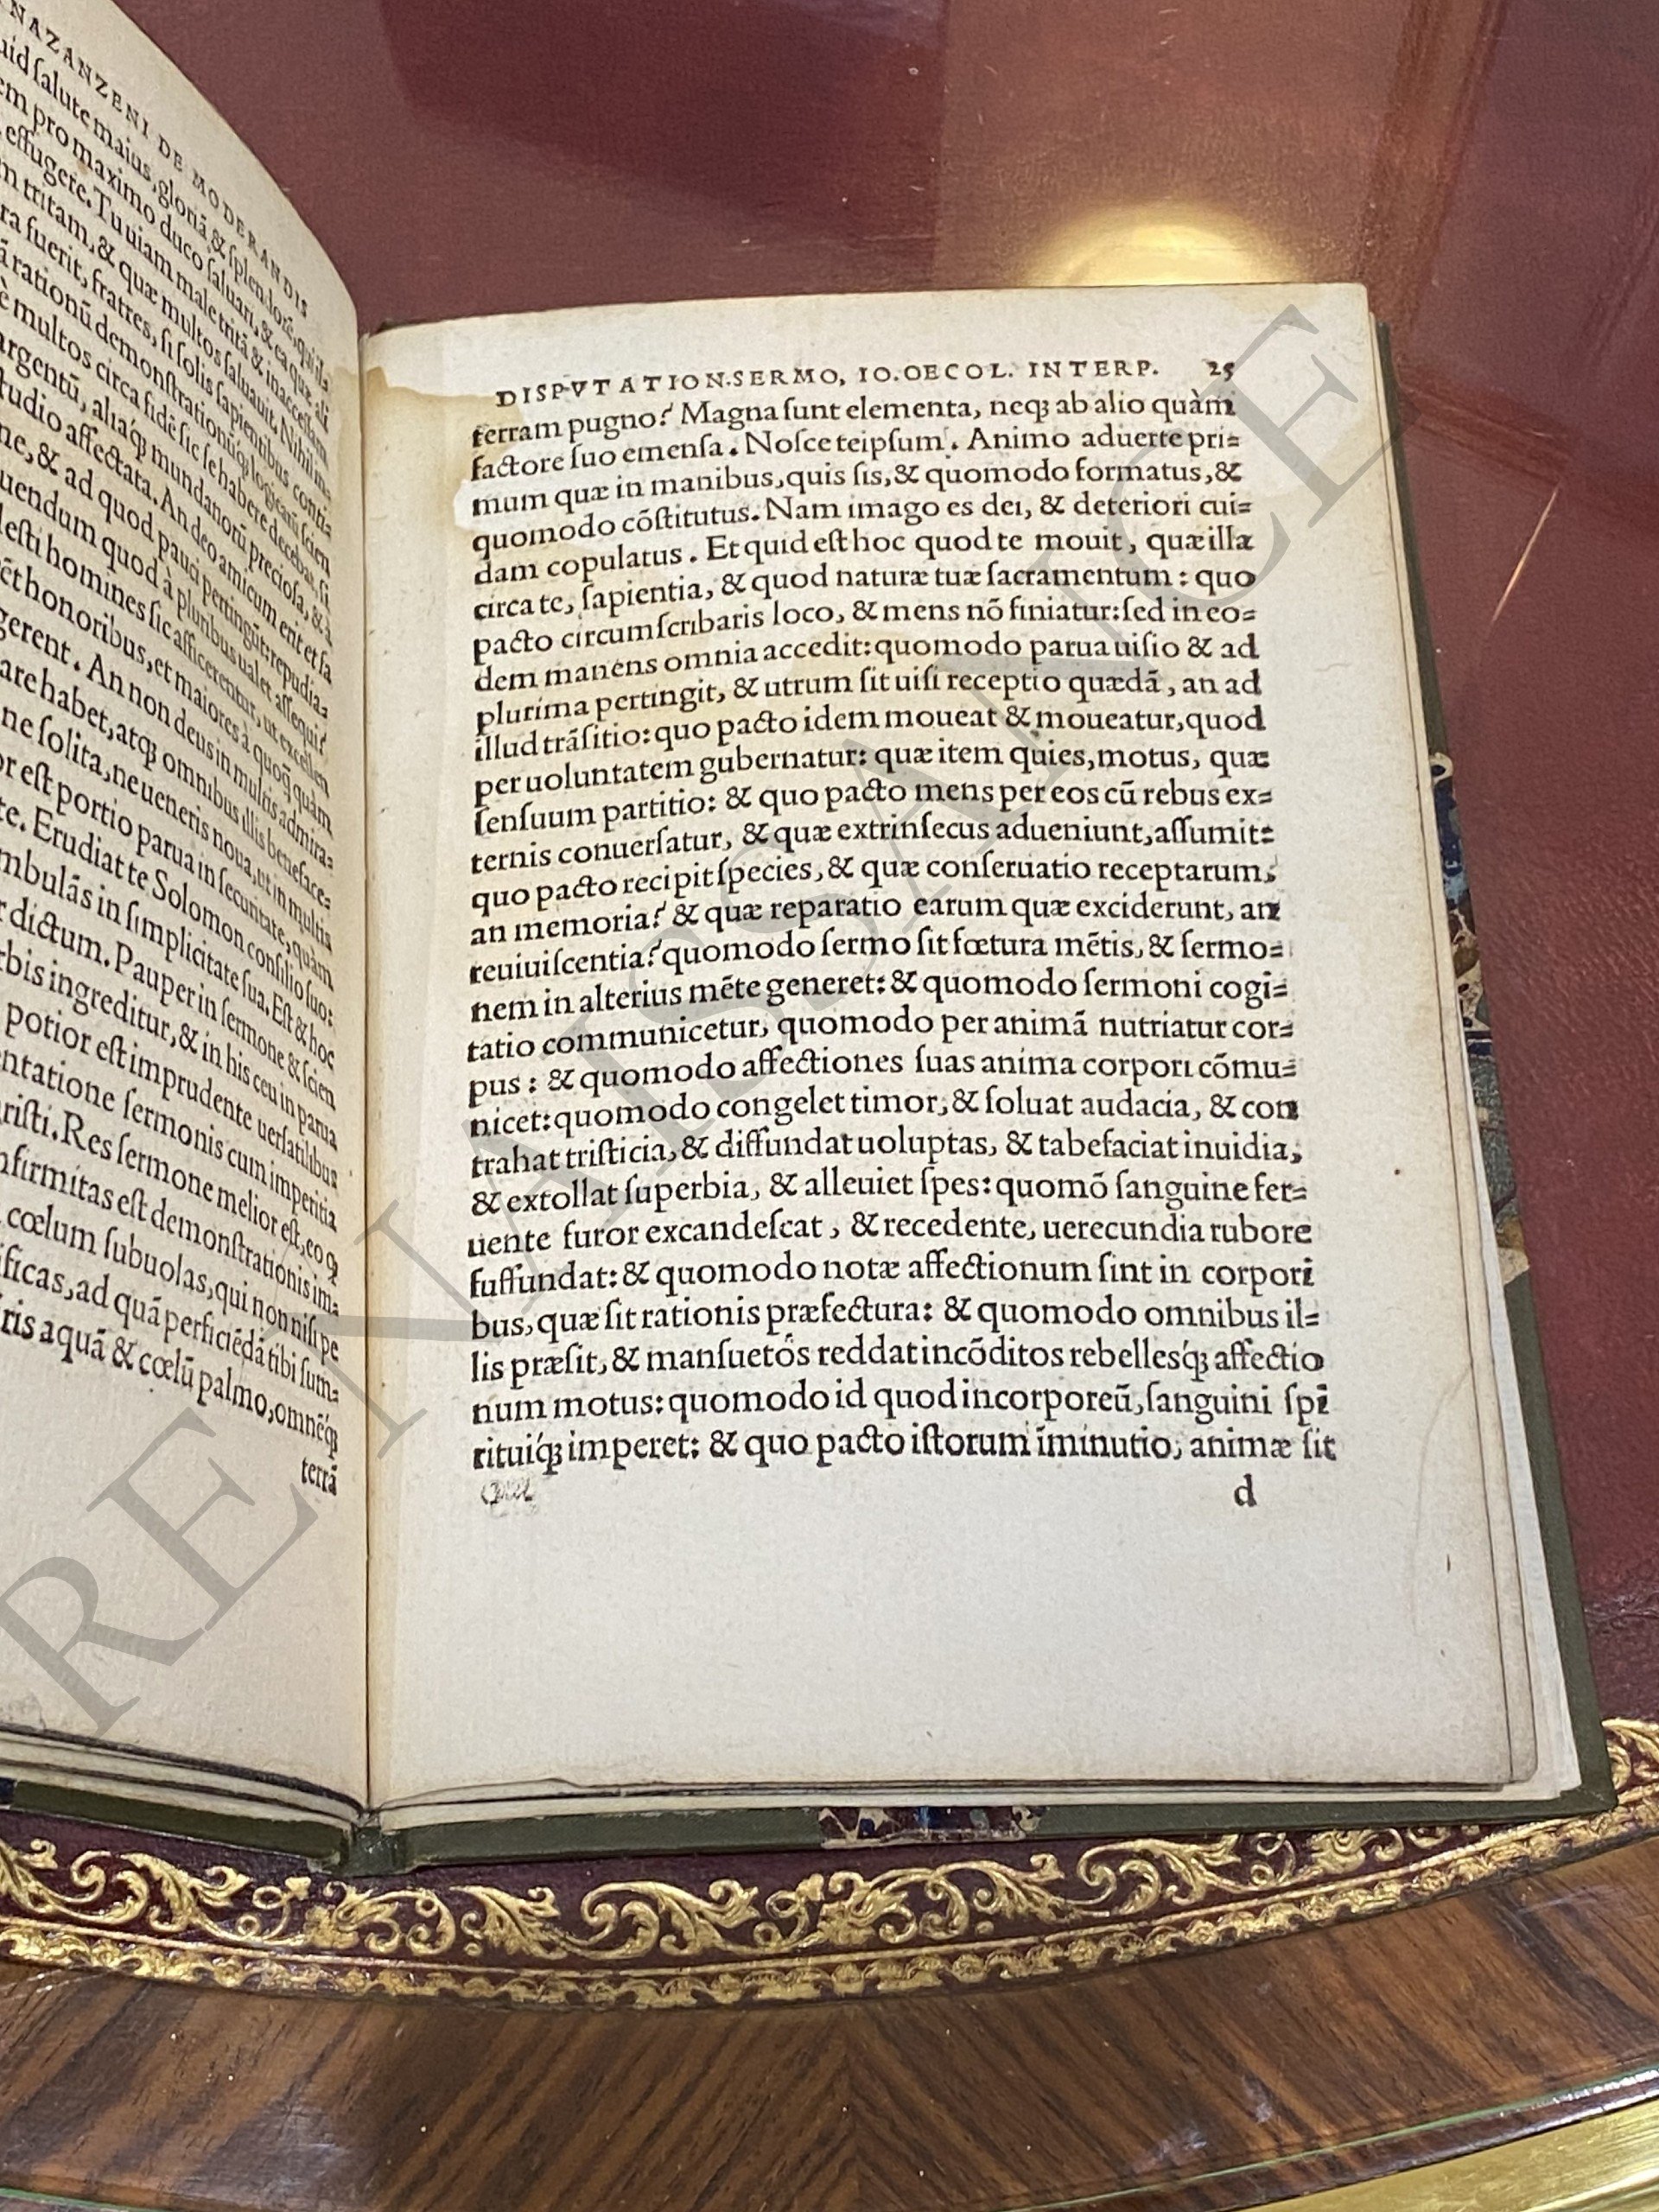 NAZANZENI DE MODERANDIS
uid ſalute maius, gloriã & ſplendorẽ, qui il⸗
em pro maximo duco ſaluari, & ea quæ ali
effugere. Tu uiam male tritã & inacceſſam
m tritam, & quæ multos ſaluauit. Nihil im⸗
ra fuerit, fratres, ſi ſolis ſapientibus conti⸗
ã rationũ demonſtrationũqꝫ logicarũ ſcien
multos circa fidẽ ſic ſe habere decebat, ſi
argentũ, aliaq́ꝫ mundanorũ precioſa, & à
tudio affectata. An deo amicum erit et ſa
ne, & ad quod pauci pertingũt: repudia⸗
uendum quod à pluribus ualet aſſequi?
leſti homines ſic afficerentur, ut excellen
ẽt honoribus, et maiores à quoqꝫ quàm
gerent. An non deus in multis admira⸗
are habet, atqꝫ omnibus illis beneface⸗
ne ſolita, ne ueneris noua, ut in multis
or eſt portio parua in ſecuritate, quàm
te. Erudiat te Solomon conſilio ſuo:
mbulãs in ſimplicitate ſua. Eſt & hoc
r dictum. Pauper in ſermone & ſcien
rbis ingreditur, & in his ceu in parua
potior eſt imprudente uerſatilibus
entatione ſermonis cum imperitia
riſti. Res ſermone melior eſt, eo ꝙ
nfirmitas eſt demonſtrationis im⸗
cœlum ſubuolas, qui non niſi pe
ificas, ad quã perficiẽdã tibi ſum⸗
ris aquã & cœlũ palmo, omnẽq́ꝫ
terrã
DISPVTATION. SERMO, IO. OECOL. INTERP. 25
terram pugno? Magna ſunt elementa, neqꝫ ab alio quàm
factore ſuo emenſa. Noſce teipſum. Animo aduerte pri⸗
mum quæ in manibus, quis ſis, & quomodo formatus, &
quomodo cõſtitutus. Nam imago es dei, & deteriori cui⸗
dam copulatus. Et quid eſt hoc quod te mouit, quæ illa
circa te, ſapientia, & quod naturæ tuæ ſacramentum: quo
pacto circumſcribaris loco, & mens nõ finiatur: ſed in eo⸗
dem manens omnia accedit: quomodo parua uiſio & ad
plurima pertingit, & utrum ſit uiſi receptio quædã, an ad
illud trãſitio: quo pacto idem moueat & moueatur, quod
per uoluntatem gubernatur: quæ item quies, motus, quæ
ſenſuum partitio: & quo pacto mens per eos cũ rebus ex⸗
ternis conuerſatur, & quæ extrinſecus adueniunt, aſſumit:
quo pacto recipit ſpecies, & quæ conſeruatio receptarum,
an memoria? & quæ reparatio earum quæ exciderunt, an
reuiuiſcentia? quomodo ſermo ſit fœtura mẽtis, & ſermo⸗
nem in alterius mẽte generet: & quomodo ſermoni cogi⸗
tatio communicetur, quomodo per animã nutriatur cor⸗
pus: & quomodo affectiones ſuas anima corpori cõmu⸗
nicet: quomodo congelet timor, & ſoluat audacia, & con
trahat triſticia, & diffundat uoluptas, & tabefaciat inuidia,
& extollat ſuperbia, & alleuiet ſpes: quomõ ſanguine fer⸗
uente furor excandeſcat, & recedente, uerecundia rubore
ſuffundat: & quomodo notæ affectionum ſint in corpori
bus, quæ ſit rationis præfectura: & quomodo omnibus il⸗
lis præſit, & manſuetos reddat incõditos rebellesq́ꝫ affectio
num motus: quomodo id quod incorporeũ, ſanguini ſpi
rituiq́ꝫ imperet: & quo pacto iſtorum ĩminutio, animæ ſit
d
RENAISSANCE